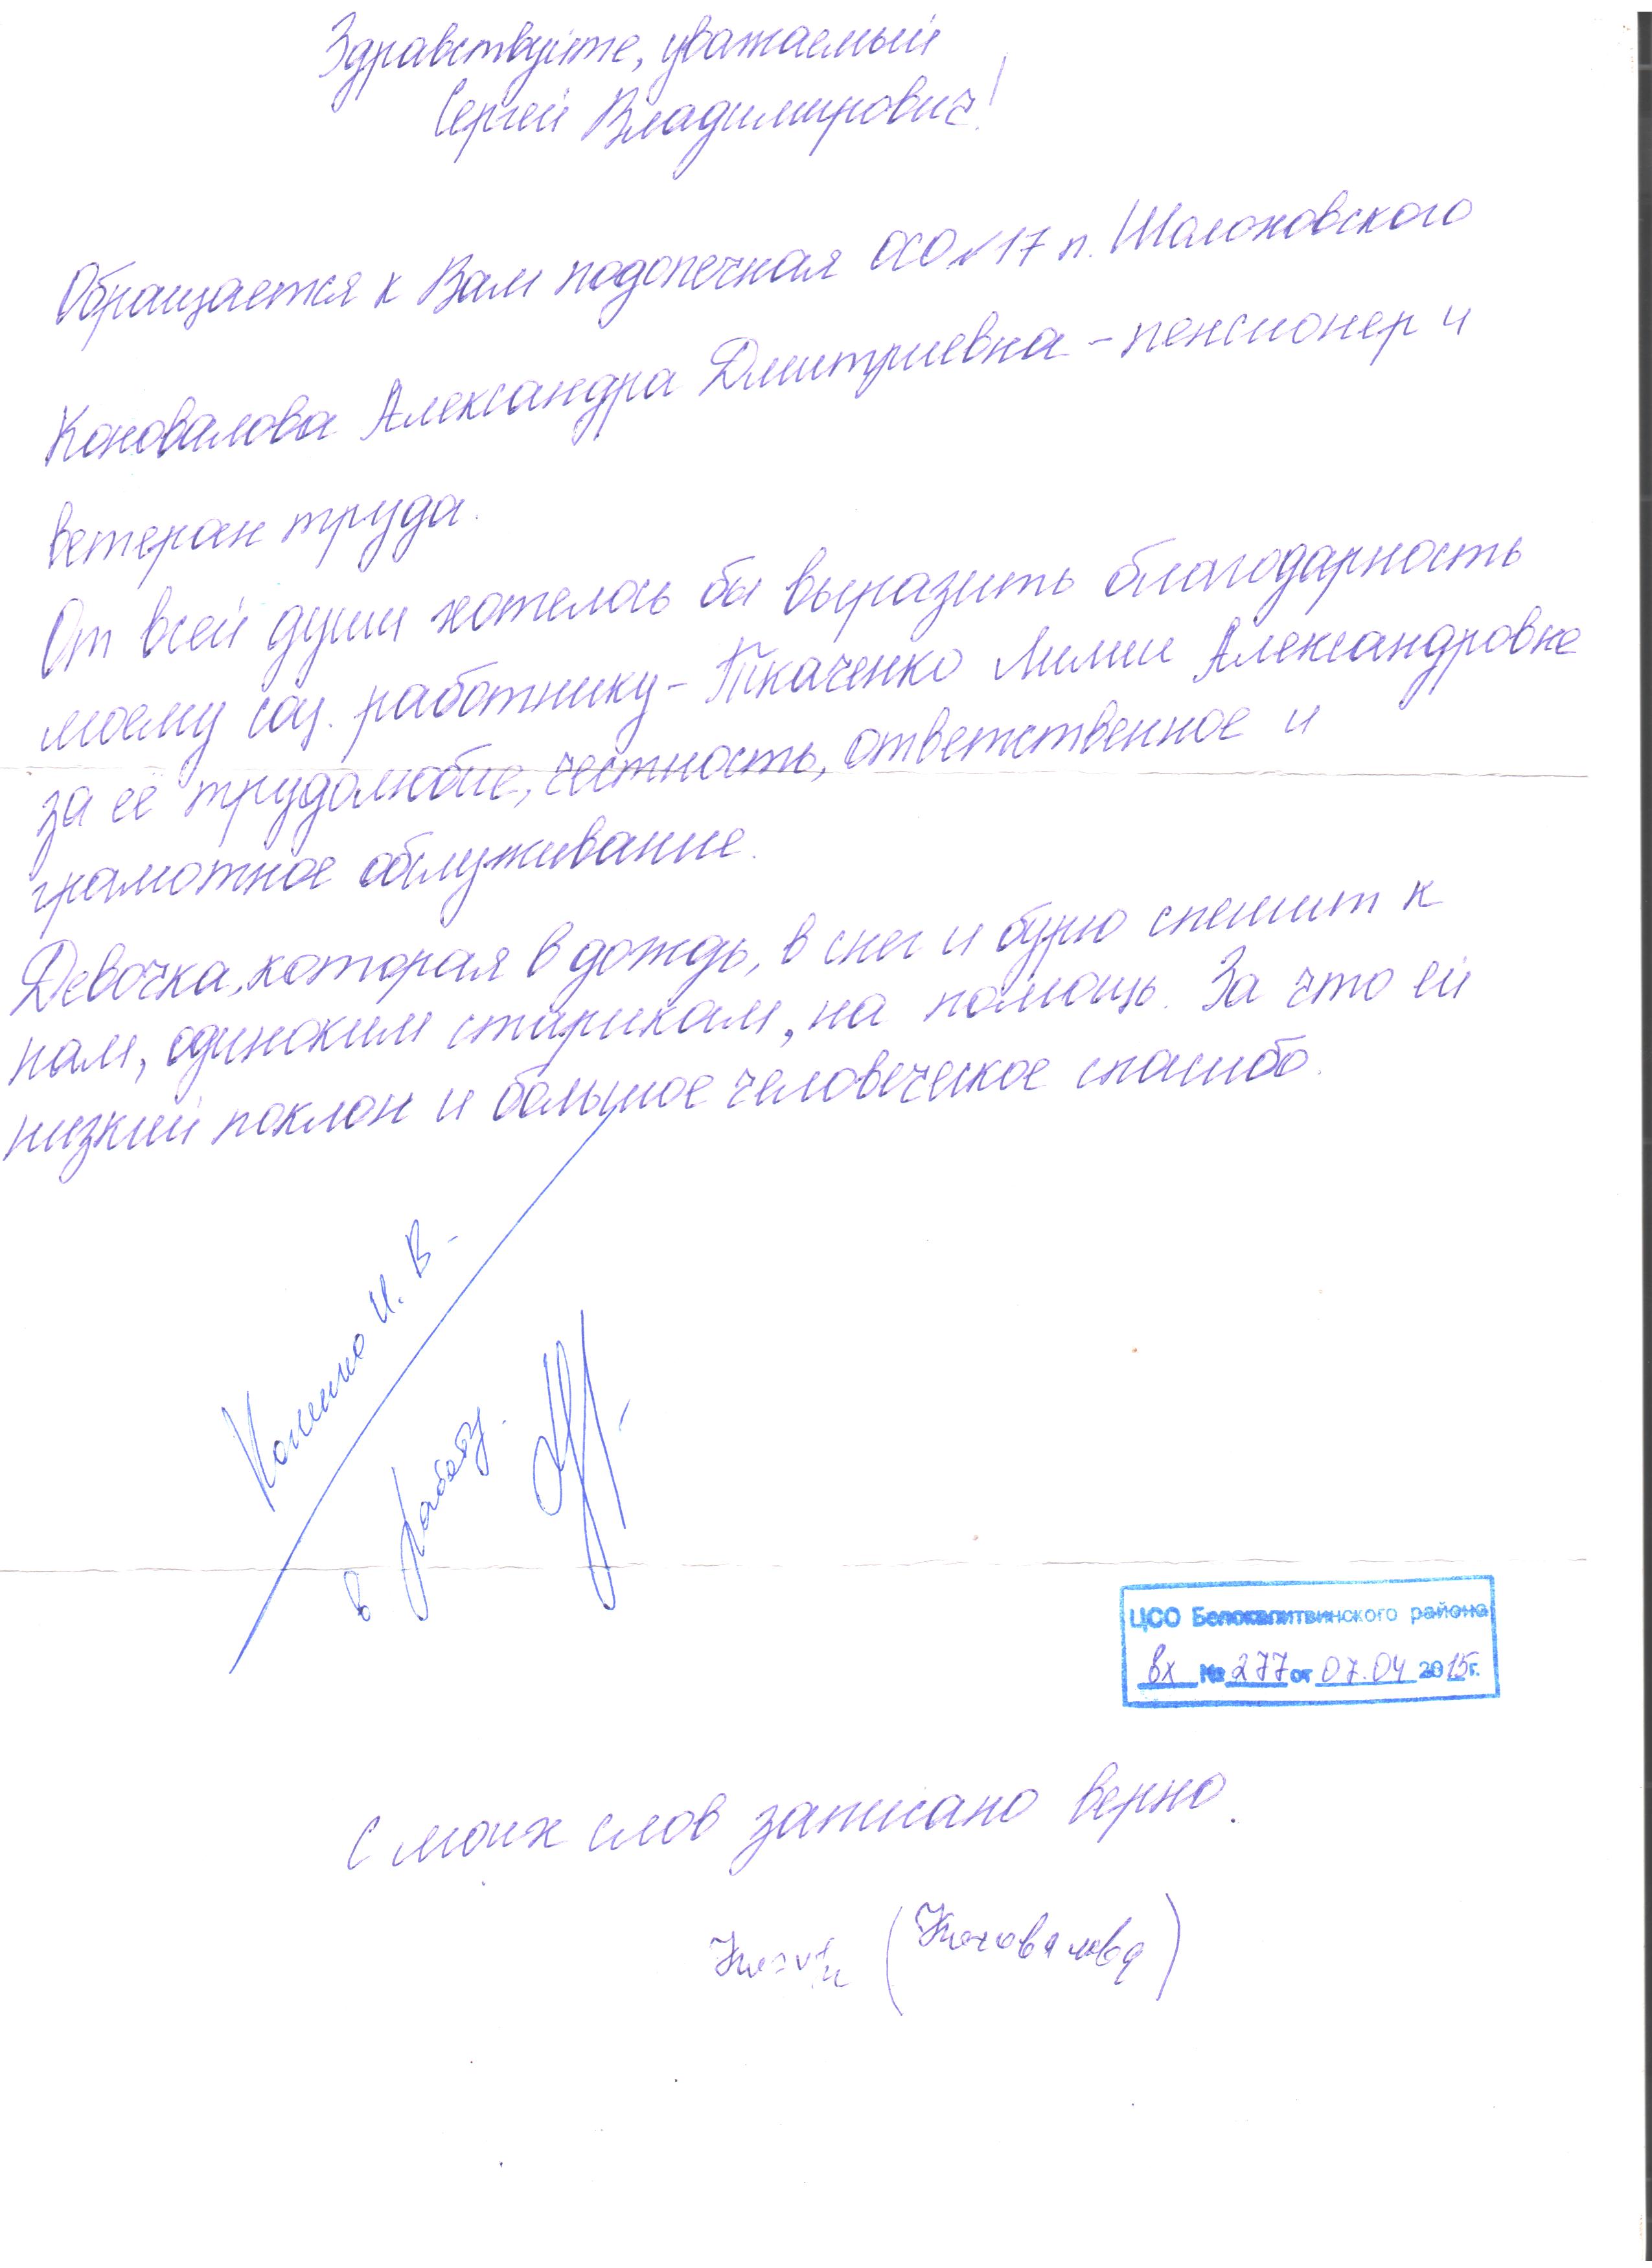 Здравствуйте, уважаемый
Сергей Владимирович!
Обращается к Вам подопечная ОСО №17 п. Шолоховского
Коновалова Александра Дмитриевна - пенсионер и
ветеран труда.
От всей души хотелось бы выразить благодарность
моему соц. работнику - Ткаченко Лилии Александровне
за её трудолюбие, честность, ответственное и
грамотное обслуживание.
Девочка, которая в дождь, в снег и бурю спешит к
нам, одиноким старикам, на помощь. За что ей
низкий поклон и большое человеческое спасибо.
И. В.
в работу.
ЦСО Белокалитвинского района
вх № 277 от 07.04 2015г.
С моих слов записано верно.
(Коновалова)